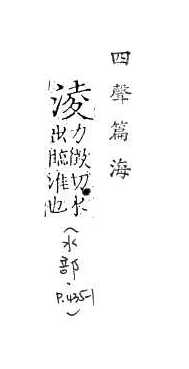 四聲篇海
淩
力徵切水
出臨淮也
(水部.
P.435-1)